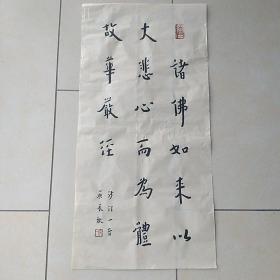 諸佛如来以
大悲心而為體
故華嚴經